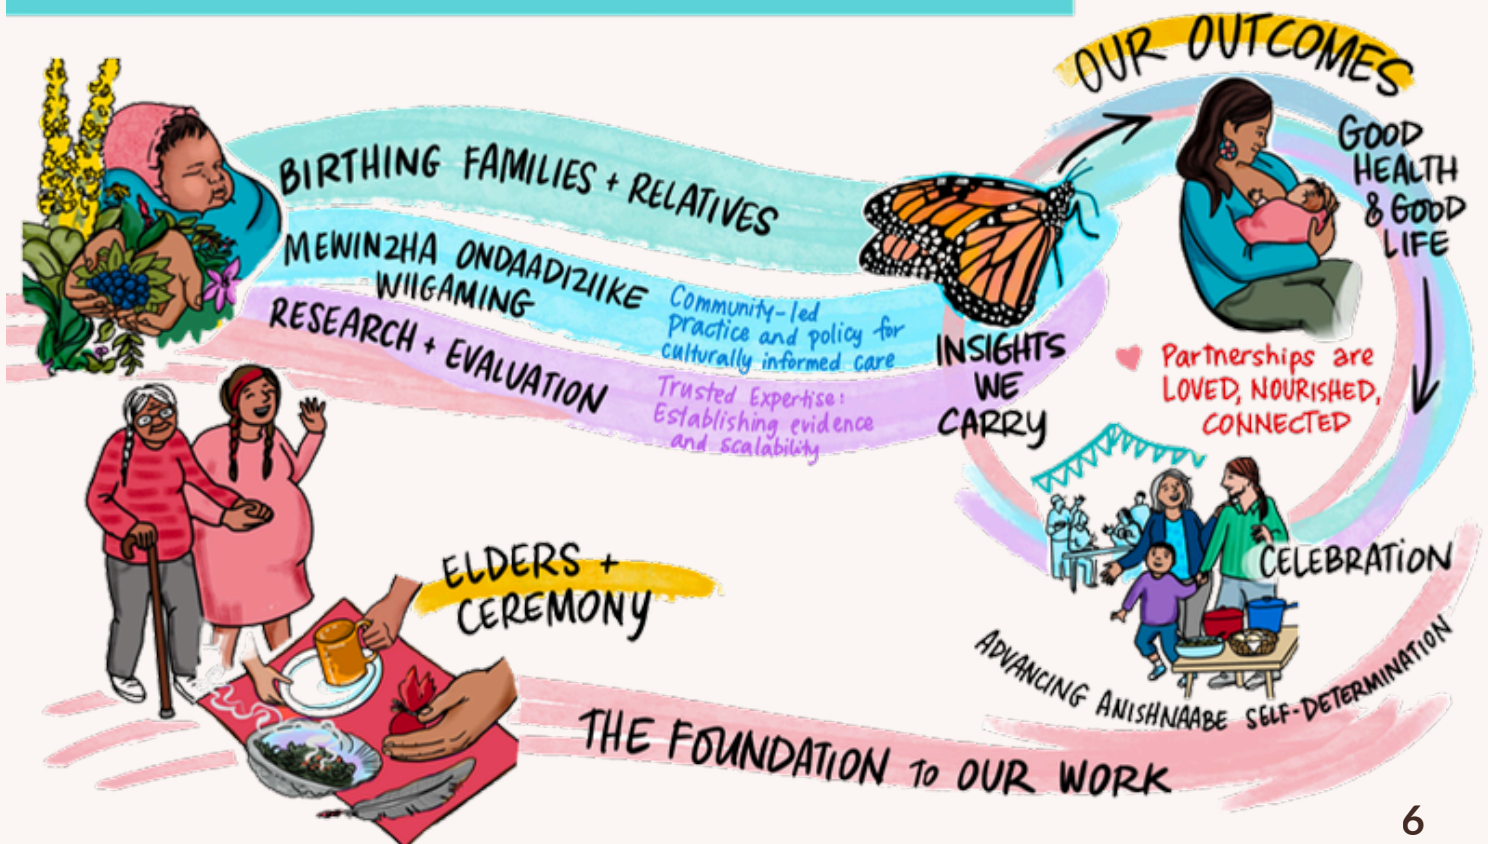 OUR OUTCOMES
BIRTHING FAMILIES + RELATIVES
MEWINZHA ONDAADIZIIKE
WIIGAMING
Community-led
practice and policy for
culturally informed care
RESEARCH + EVALUATION
Trusted Expertise:
Establishing evidence
and scalability
INSIGHTS
WE
CARRY
GOOD
HEALTH
& GOOD
LIFE
Partnerships are
LOVED, NOURISHED,
CONNECTED
CELEBRATION
ADVANCING ANISHNAABE SELF-DETERMINATION
ELDERS +
CEREMONY
THE FOUNDATION TO OUR WORK
6